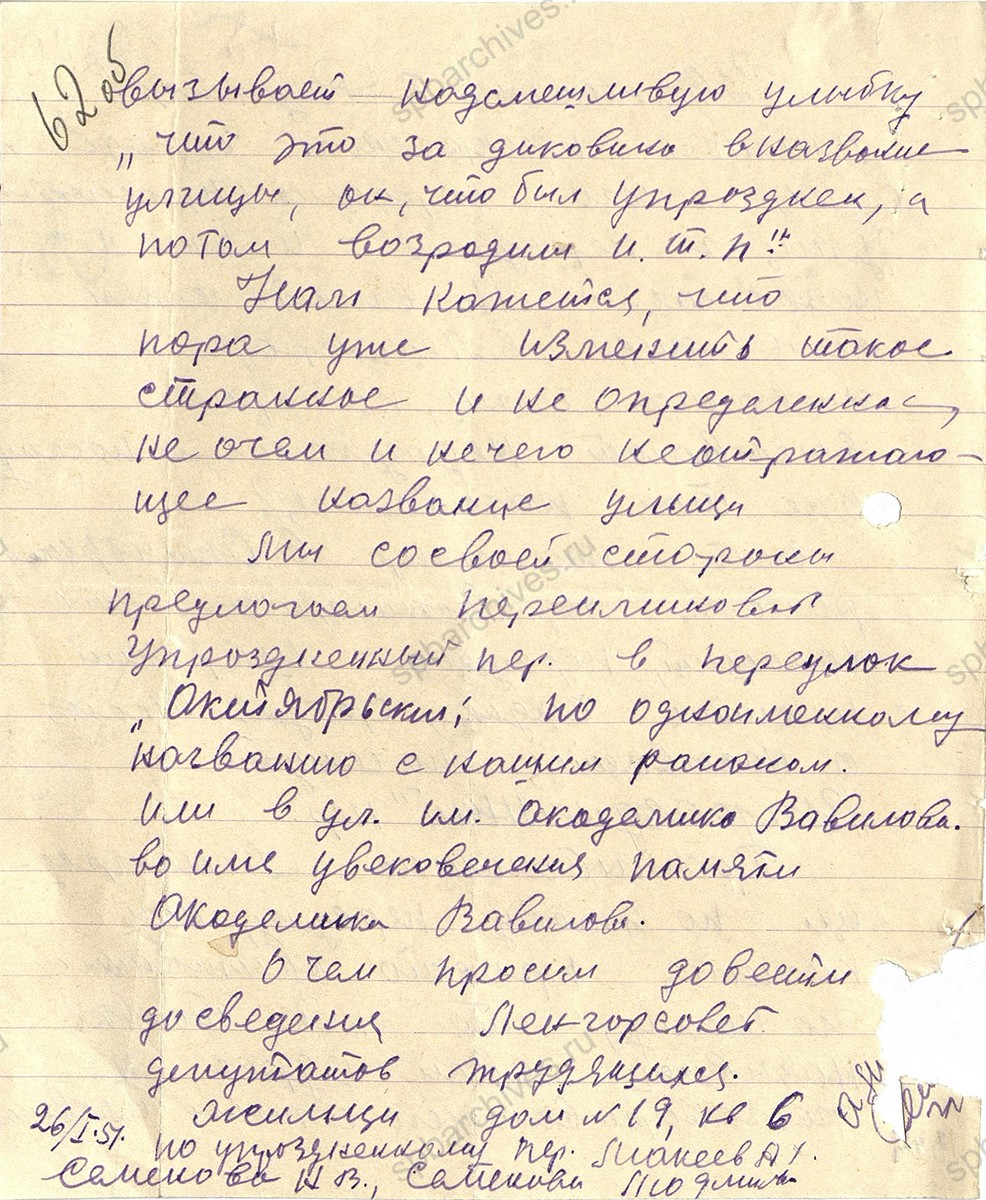 62 об
вызывает надсмешливую улыбку
„что это за диковина в название
улицы, он, что был упразднен, а
потом возродили и.т.п!"
Нам кажется, что
пора уже изменить такое
странное и не определенное,
не очем и нечего неотражаю-
щее название улицы
Мы сосвоей стороны
предлогаем переименовать
Упраздненный пер. в переулок
„Октябрьский" по одноименному
названию с нашим районом.
или в ул. им. Академика Вавилова.
во имя увековечения памяти
Академика Вавилова.
О чем просим довести
досведения Ленгорсовет
депутатов трудящихся.
жильцы дом №19, кв 6
26/I.51. по упраздненному пер. Макеев А
Семенова Н.В., Семенова Людмила
sparchives.ru